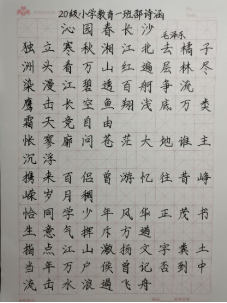 20级小学教育一班邵诗涵
沁园春长沙
毛泽东
独立寒秋湘江北去橘子
洲头看万山红遍层林尽
染漫江碧透百舸争流
鹰击长空鱼翔浅底万类
霜天竞自由
怅寥廓问苍茫大地谁主
沉浮
携来百侣曾游忆往昔峥
嵘岁月稠
恰同学少年风华正茂书
生意气挥斥方遒
指点江山激扬文字粪土
当年万户侯曾记否到中
流击水浪遏飞舟